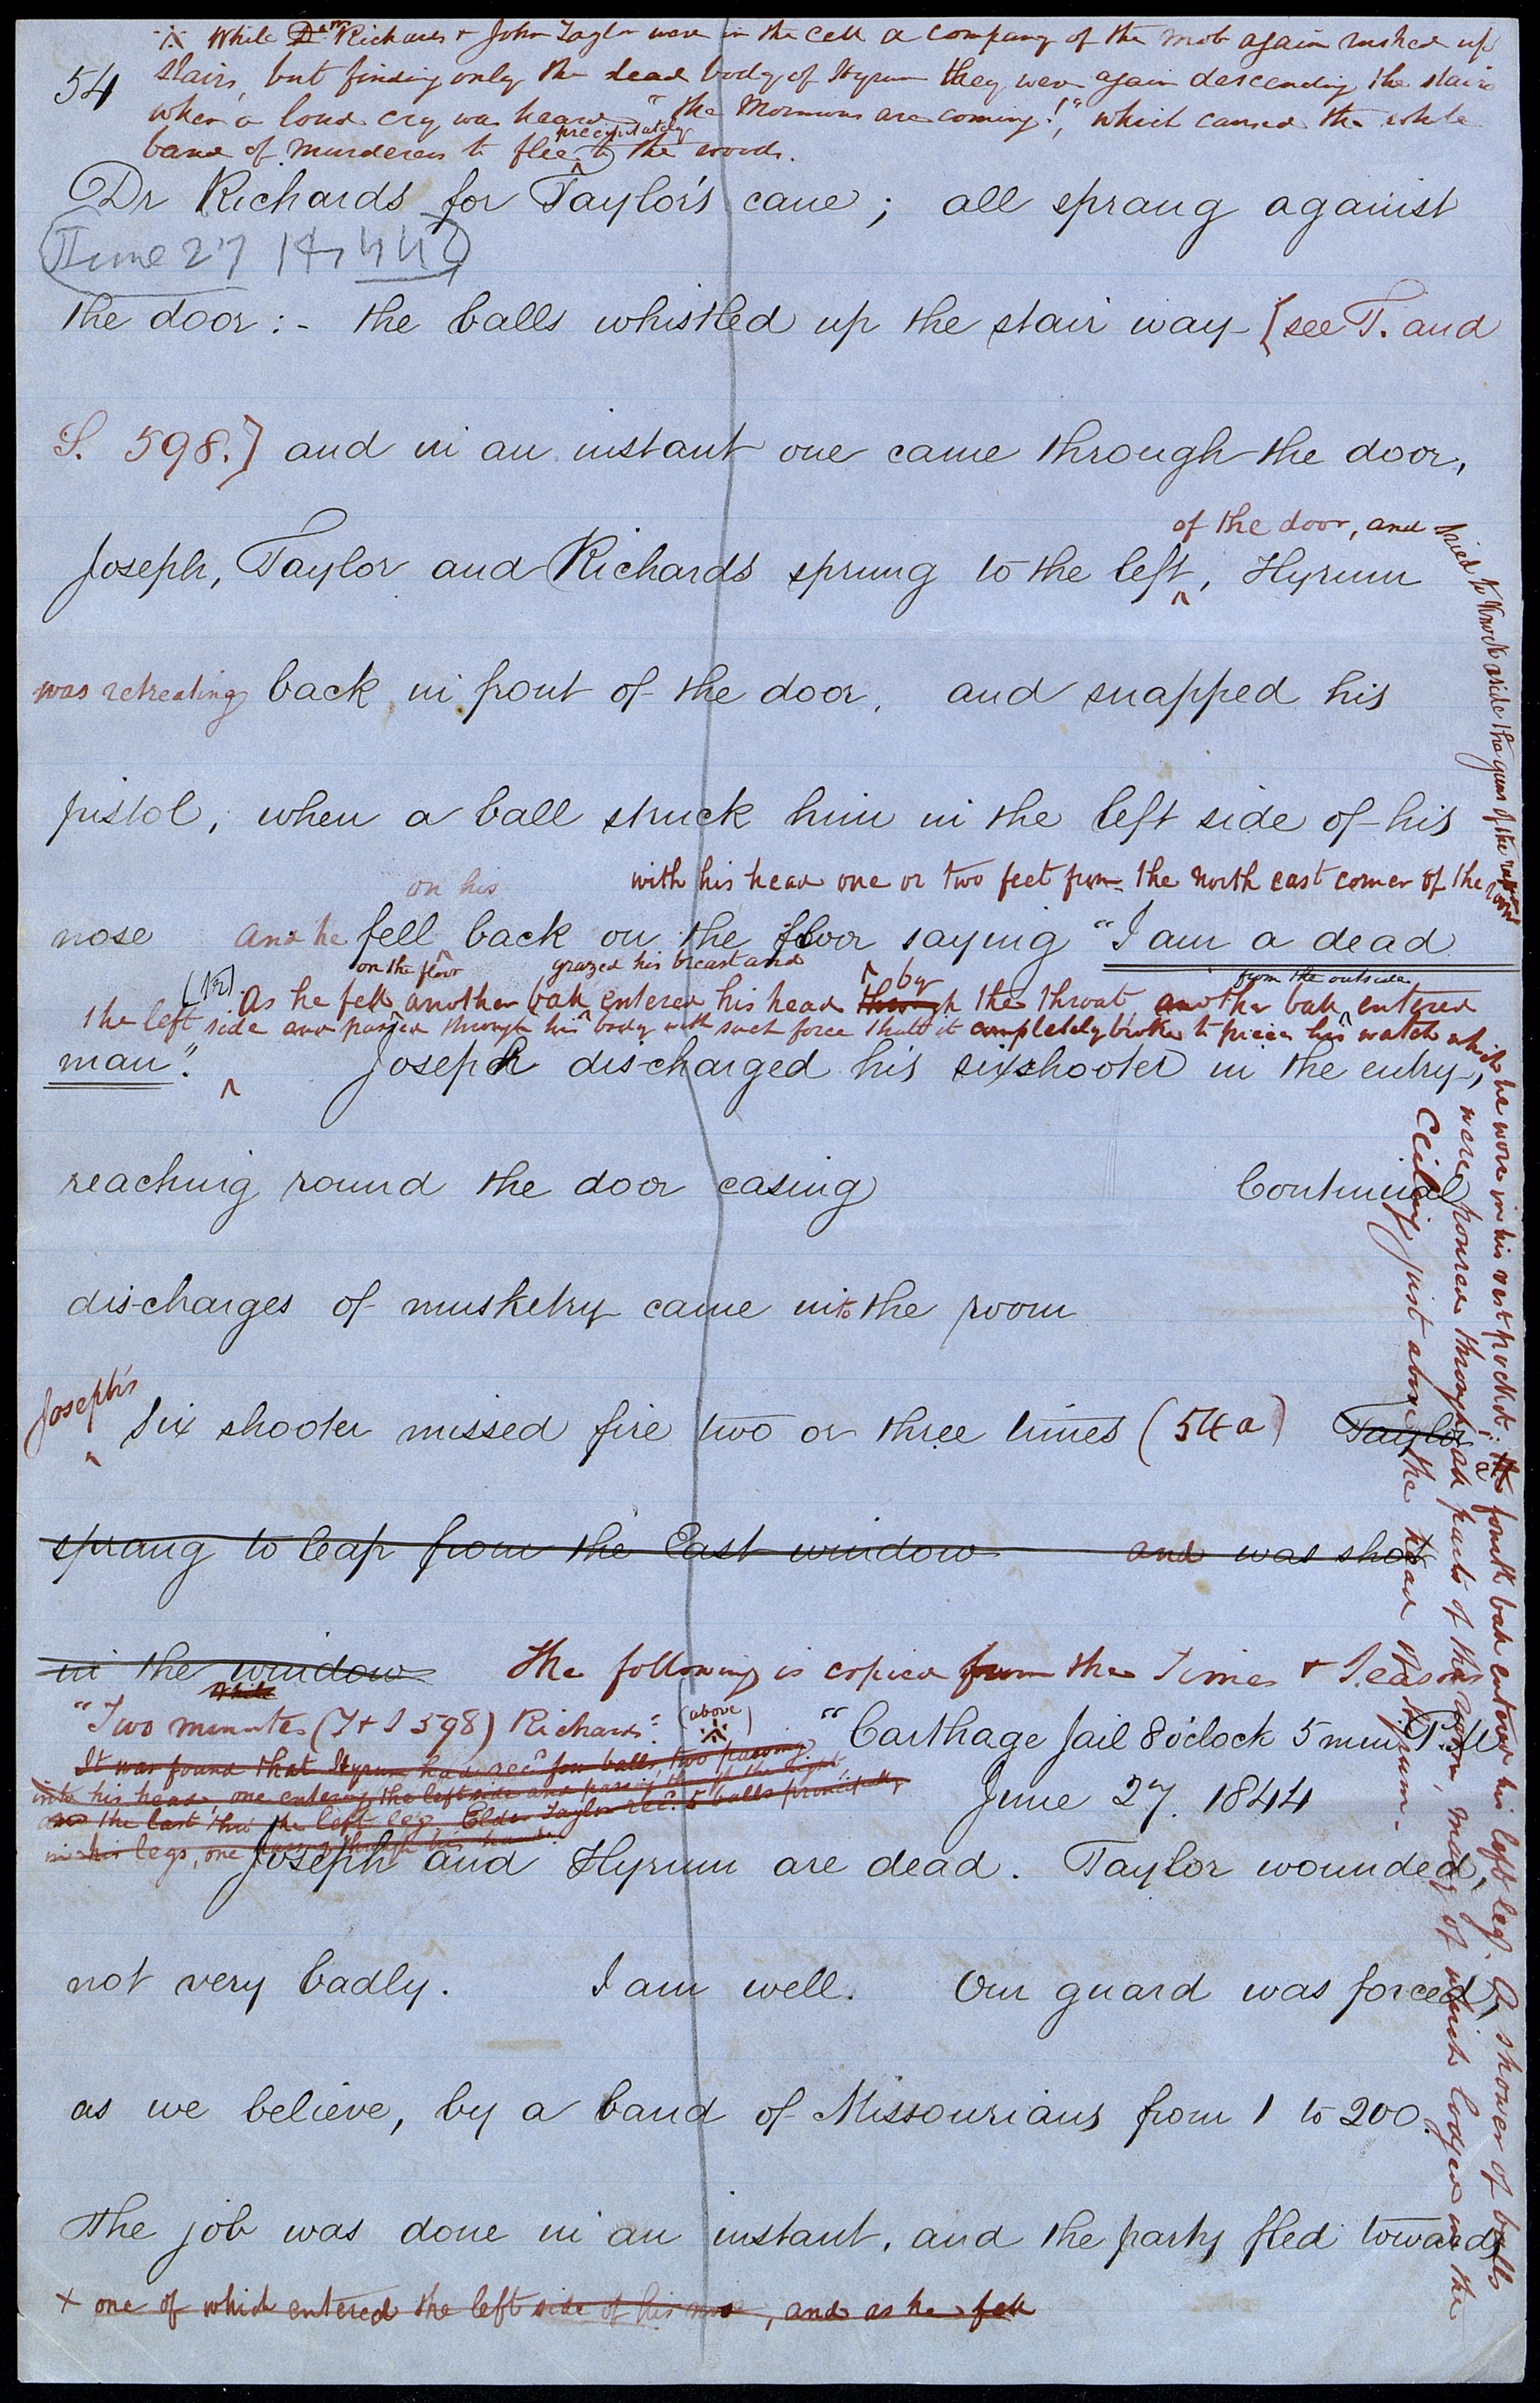 ※ While Dr Richards & John Taylor were in the cell a company of the mob again rushed up
54 stairs, but finding only the dead body of Hyrum they were again descending the stairs
when a loud cry was heard "the Mormons are coming!", which caused the whole
precipitately
band of murderers to flee to the woods.
Dr Richards for Taylor's cane; all sprang against
June 27 1844
the door:- the balls whistled up the stair way [see T. and
S. 598.] and in an instant one came through the door,
of the door, and tried to knock aside the guns of the
Joseph, Taylor and Richards sprung to the left, Hyrum
was retreating back in front of the door, and snapped his
pistol, when a ball struck him in the left side of his
on his with his head one or two feet from the north east corner of the room
nose and he fell back on the floor saying "I am a dead
on the floor grazed his breast and by from the outside
(12) As he fell another ball entered his head through the throat, another ball entered
the left side and passed through his body with such force that it completely broke to pieces his watch which he wore in his vest pocket; the a fourth ball entered his left leg. A shower of balls
were poured through all parts of the room, many of which lodged in the
ceiling just above the head of Hyrum.
man." Joseph discharged his sixshooter in the entry,
reaching round the door casing Continual
discharges of musketry came into the room
Joseph's
Six shooter missed fire two or three times (54a) Taylor
sprang to leap from the East window and was shot
in the window The following is copied from the Times & Seasons
While
"Two minutes (T & S 598) Richards" (above) ※ "Carthage Jail 8 o'clock 5 min P.M
It was found that Hyrum had recd four balls, two passing
into his head, one entering the left side and passing thro' the right,
and the last thro the left leg. Elder Taylor recd. 5 balls principally
in his legs, one passing through his hand.
June 27. 1844
Joseph and Hyrum are dead. Taylor wounded,
not very badly. I am well. Our guard was forced,
as we believe, by a band of Missourians from 1 to 200.
The job was done in an instant, and the party fled towards
+ one of which entered the left side of his nose, and as he fell